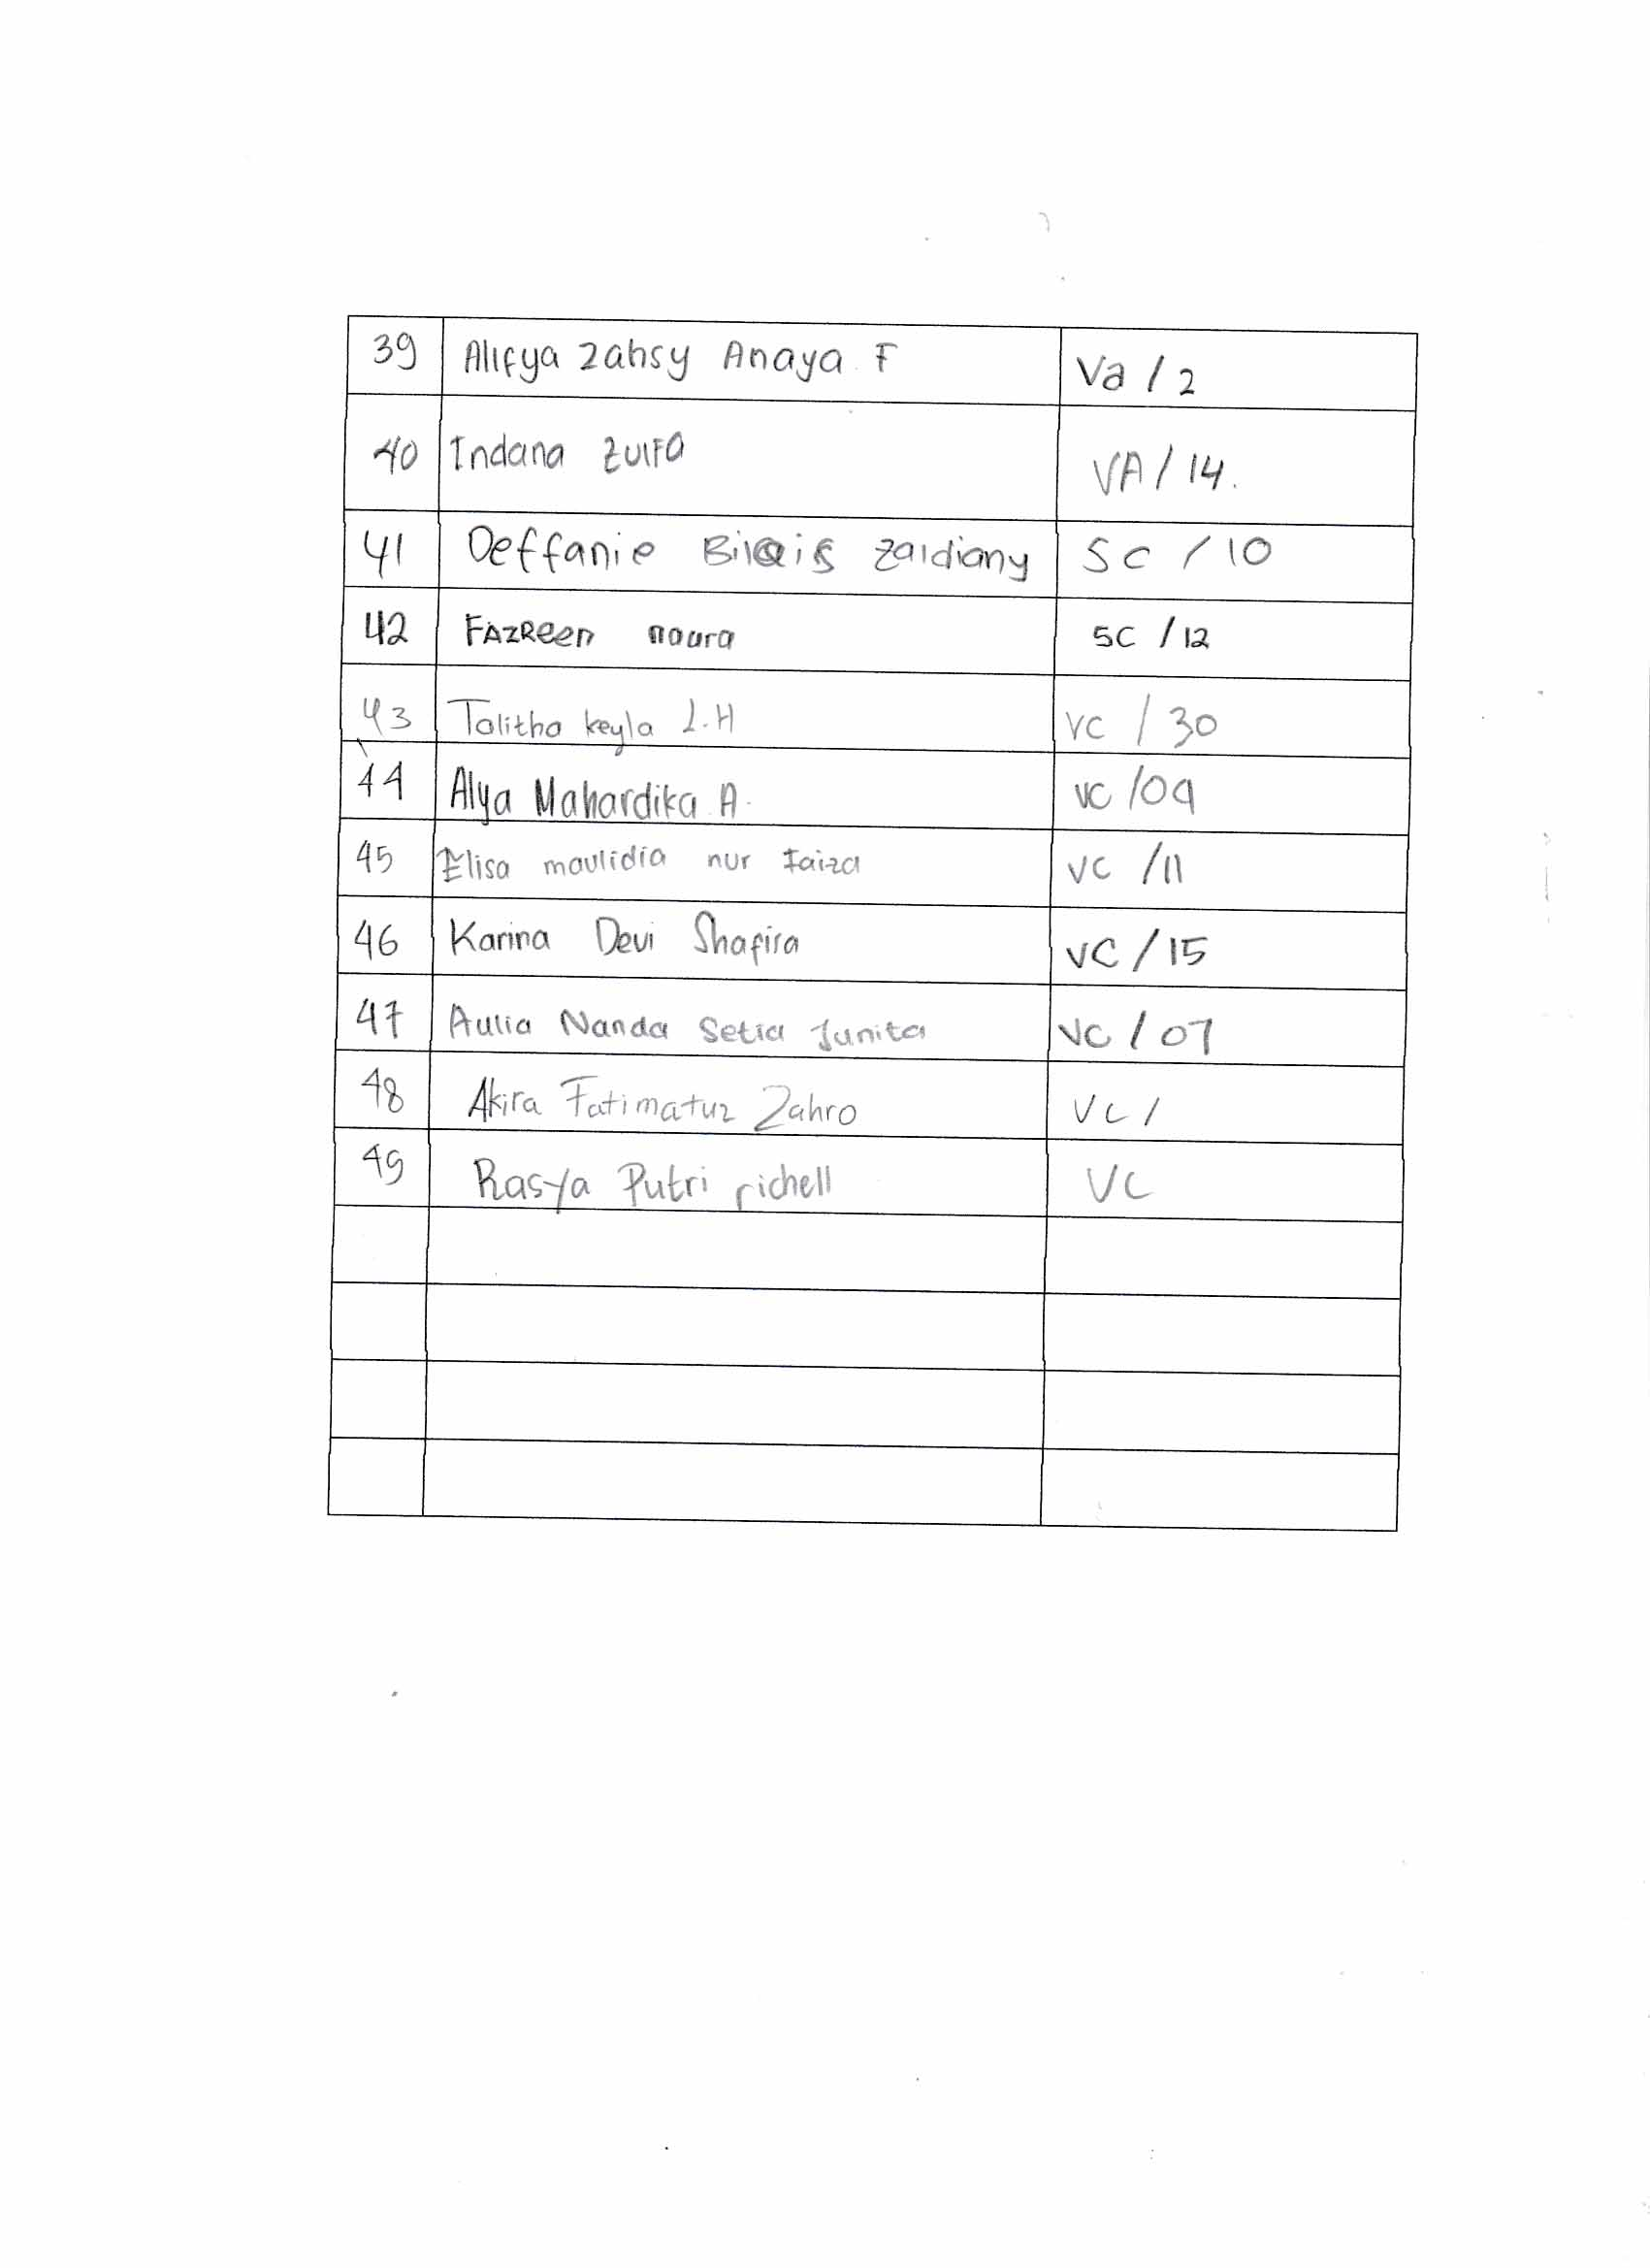 39 Alifya Zahsy Anaya F Va / 2
40 Indana Zulfa VA / 14.
41 Deffanie Bilqis Zaldiany 5C / 10
42 FAZReen noura 5C / 12
43 Talitha keyla L.H VC / 30
44 Alya Mahardika A. VC / 09
45 Elisa maulidia nur faiza VC / 11
46 Karina Devi Shafira VC / 15
47 Aulia Nanda Setia Junita VC / 07
48 Akira Fatimatuz Zahro VC /
49 Rasya Putri richell VC